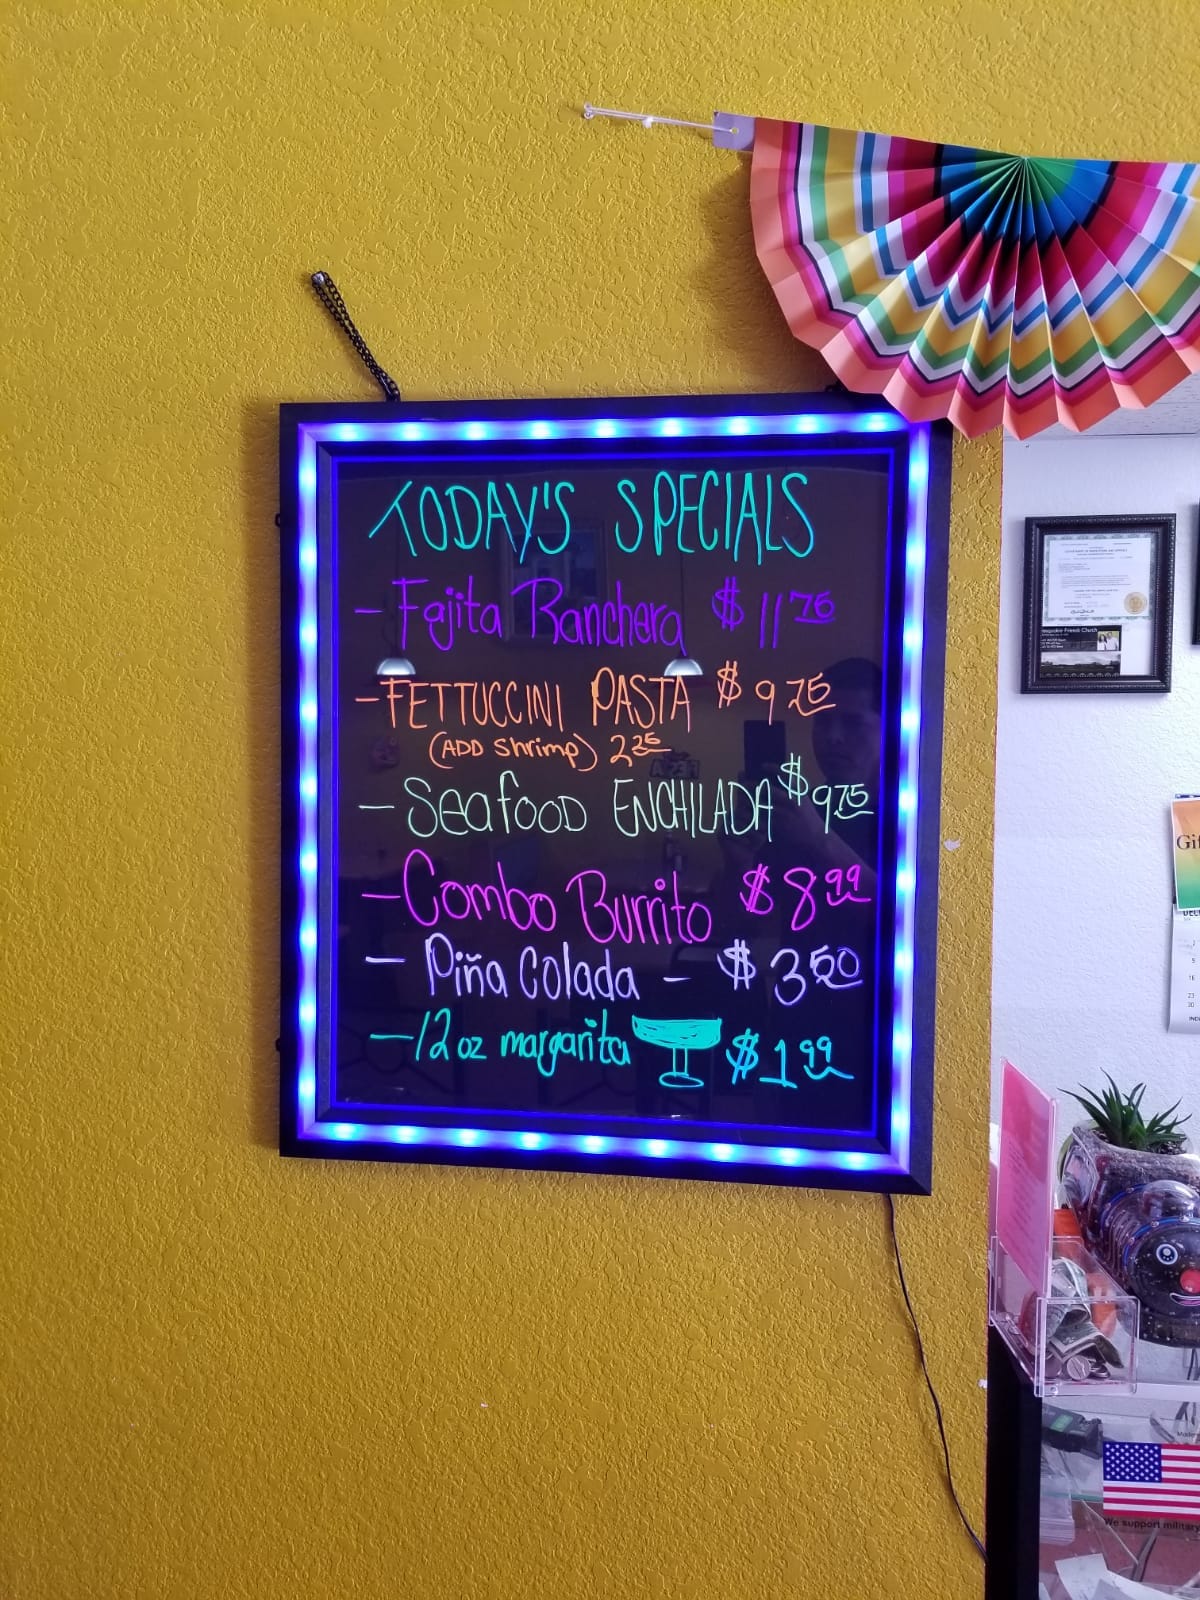 TODAY'S SPECIALS
- Fajita Ranchera $ 11 75
- FETTUCCINI PASTA $ 9 75
(ADD Shrimp) 2 25
- Seafood ENCHILADA $ 9 75
- Combo Burrito $ 8 99
- Piña Colada - $ 3 50
- 12 oz margarita $ 1 99
Friends Church
Gif
We support military